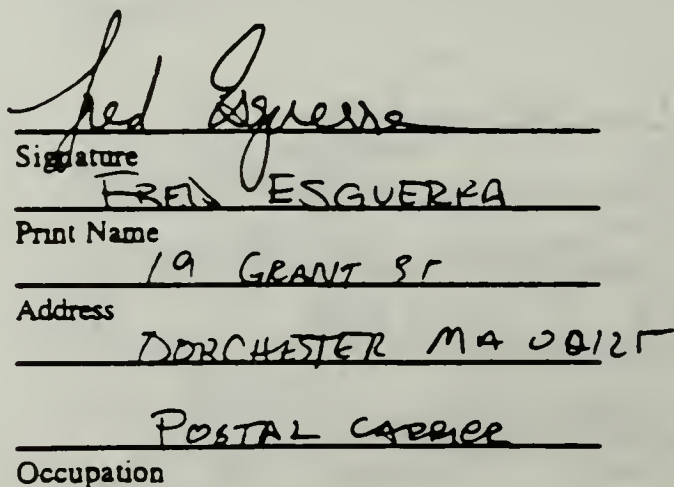 Fred Esguerra
Signature
FRED ESGUERRA
Print Name
19 GRANT ST
Address
DORCHESTER MA 02125
POSTAL CARRIER
Occupation